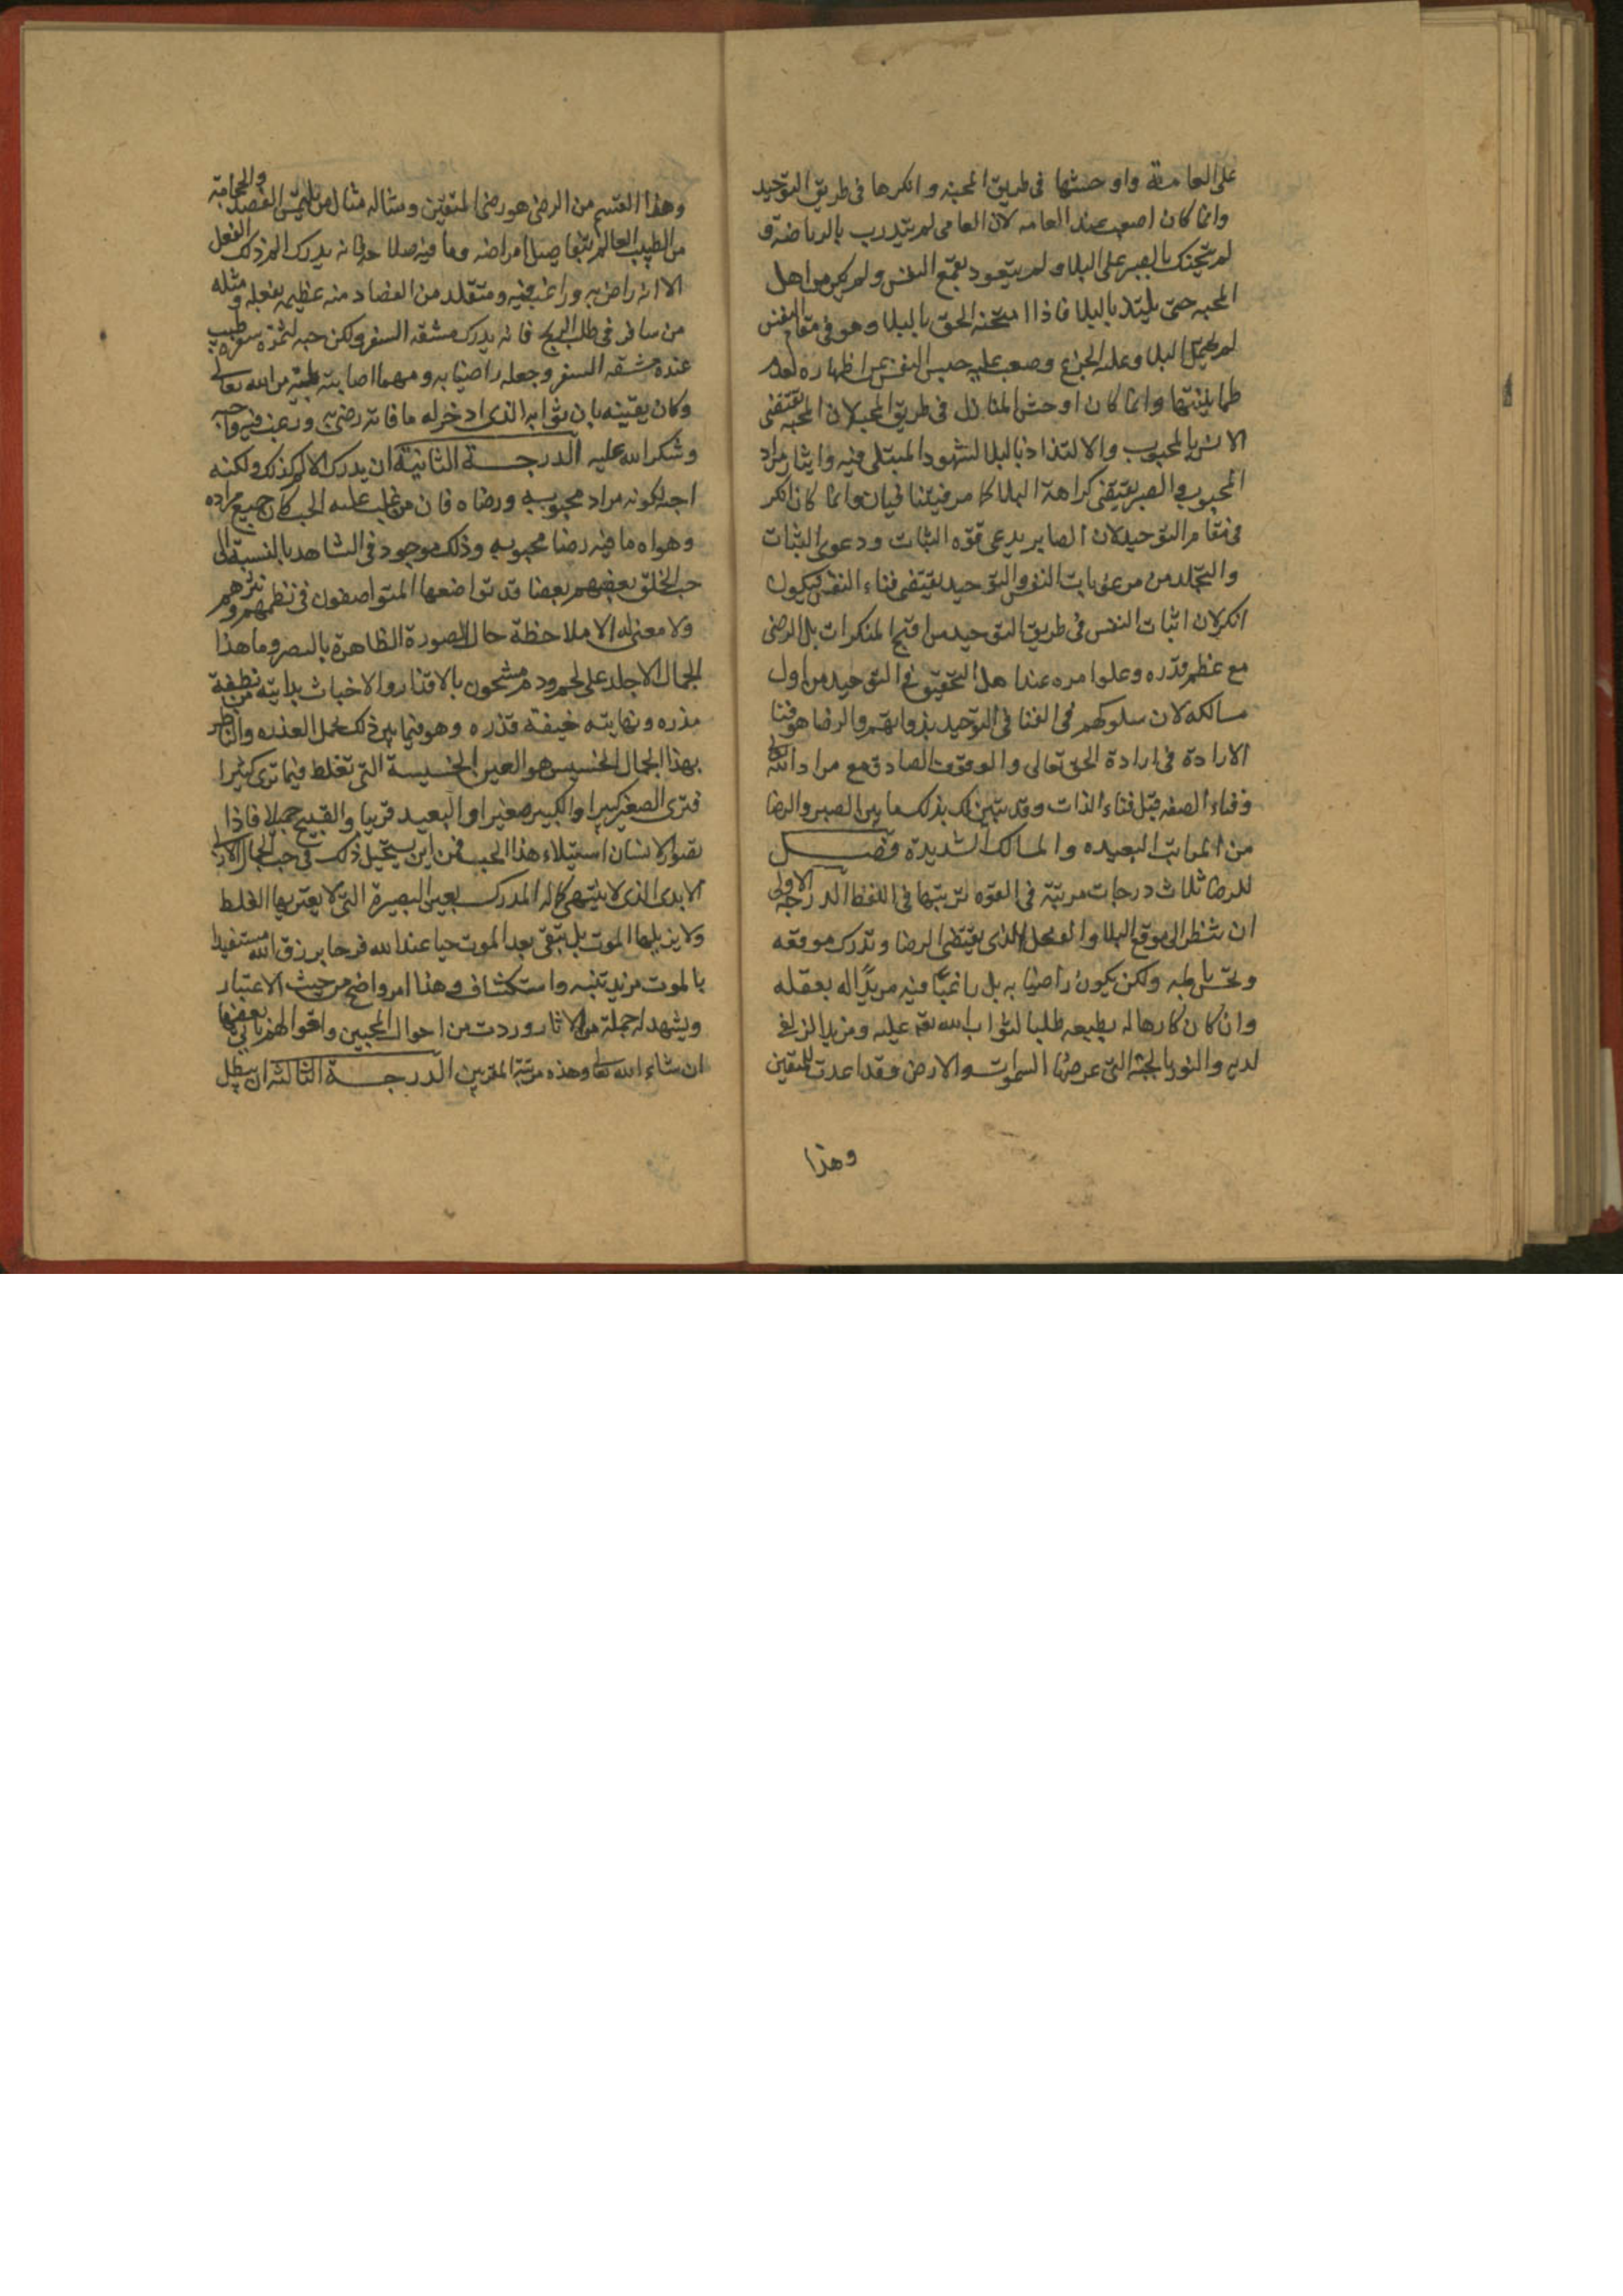 على العامة واوحشها فى طريق المحبه وانكرها فى طريق التوحيد
وانما كان اصعب عند العامه لان العامى لم يتدرب بالرياضة و
لم يتحنك بالصبر على البلا ولم يتعود بقمع النفس ولم يكن من اهل
المحبه حتى يلتذ بالبلا فاذا امتحنه الحق بالبلا وهو فى مقام النفس
لم يحتمل البلا وغلبه الجزع وصعب عليه حبس النفس عن اظهاره لعدم
طمانينتها وانما كان اوحش المنازل فى طريق المحبه لان المحبه تقتضى
الانس بالمحبوب والالتذاذ بالبلا لشهود المبتلى فيه وايثار مراد
المحبوب والصبر يقتضى كراهة البلا كما مر فيتنافيان وانما كان انكر
فى مقام التوحيد لان الصابر يدعى قوه الثبات ودعوى الثبات
والتجلد من رعونات النفس والتوحيد يقتضى فناء النفس فيكون
انكر لان اثبات النفس فى طريق التوحيد من اقبح المنكرات بل الرضى
مع عظم قدره وعلو امره عند اهل التحقيق فى التوحيد من اول
مسالكه لان سلوكهم فى الفنا فى التوحيد بذواتهم والرضا هو فنا
الارادة فى ارادة الحق تعالى والوقوف الصادق مع مراد الله تعالى
وفناء الصفه قبل فناء الذات وقد تبين لك بذلك ما بين الصبر والرضا
من المراتب البعيده والمسالك الشديدة فصل
للرضا ثلاث درجات مرتبة فى القوه ترتبها فى اللفظ الدرجة الاولى
ان ينظر الى موقع البلا والفعل الذى يقتضى الرضا ويدرك موقعه
ويحس بالمه ولكن يكون راضيا به بل راغبًا فيه مريدًا له بعقله
وان كان كارها له بطبعه طلبا لثواب الله تعه عليه ومزيد الزلفى
لديه والفوز بالجنة التى عرضها السموات والارض وقد اعدت للمتقين
وهذا
وهذا القسم من الرضى هو رضى المتقين ومثاله مثال من يلتمس الفصد والحجامة
من الطبيب العالم بتفاصيل امراضه وما فيه صلاحه فانه يدرك الم ذلك الفعل
الا انه راض به وراغب فيه ومتقلد من الفصاد منه عظيمه بفعله ومثله
من سافر فى طلب الربح فانه يدرك مشقه السفر ولكن حبه لثمرة سفره طيب
عنده مشقه السفر وجعله راضيا به ومهما اصابته بلية من الله تعالى
وكان يقينه بان ثوابه الذى ادخر له ما فاته رضى به ورغب فيه واحبه
وشكر الله عليه الدرجة الثانية ان يدرك الالم كذلك ولكنه
احبه لكونه مراد محبوبه ورضاه فان من غلب عليه الحب كان جميع مراده
وهواه ما فيه رضا محبوبه وذلك موجود فى الشاهد بالنسبة الى
حب الخلق بعضهم بعضا قد تواضعها المتواصفون فى نظمهم ونثرهم
ولا معنى له الا ملاحظة حال الصورة الظاهرة بالبصر وما هذا
الجمال الا جلد على لحم ودم مشحون بالاقذار والاخباث بدايته من نطفة
مذره ونهايته جيفة قذره وهو فيما بين ذلك يحمل العذره والناظر
بهذا الجمال الخسيس هو العين الخسيسة التى تغلط فيما ترى كثيرا
فترى الصغير كبيرا والكبير صغيرا والبعيد قريبا والقبيح جميلا فاذا
تصور الانسان استيلاء هذا الحب فمن اين يستحيل ذلك فى حب الجمال الازلى
الابدى الذى لا ينتهى كماله المدرك بعين البصيرة التى لا يعتريها الغلط
ولا يزيلها الموت بل تبقى بعد الموت حيا عند الله فرحا برزق الله مستفيدا
بالموت مزيد تنبه واستكشاف وهذا امر واضح من حيث الاعتبار
ويشهد له جملة من الاثار وردت من احوال المحبين واقوالهم ياتى بعضها
ان شاء الله تعالى وهذه مرتبة المقربين الدرجة الثالثة ان يبطل